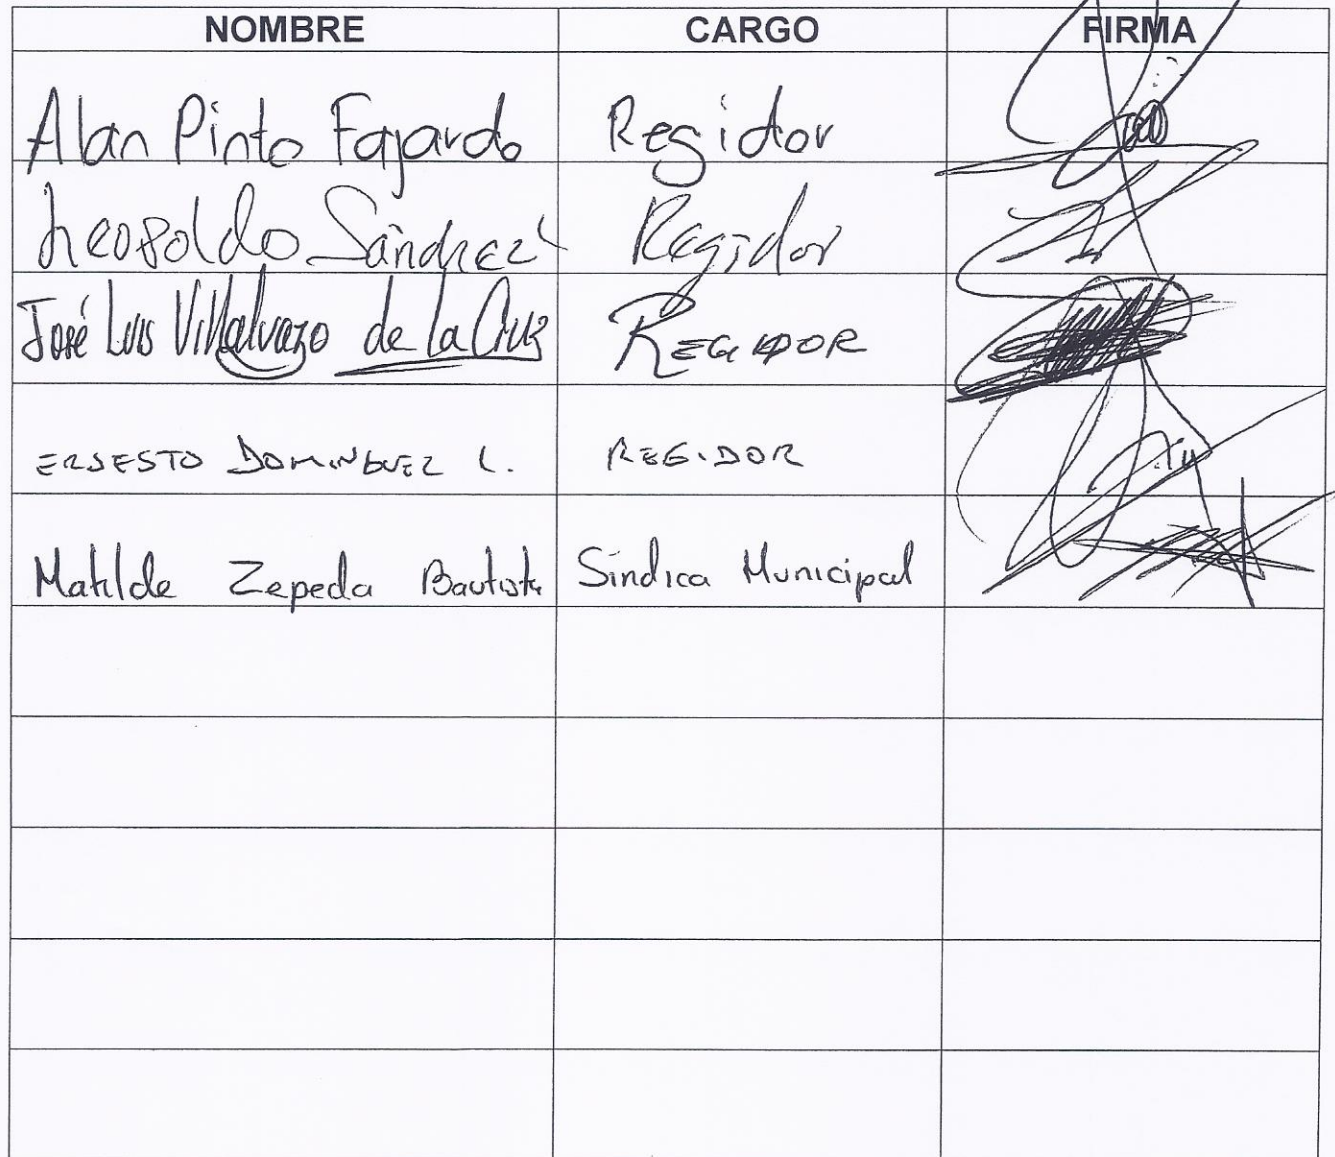 NOMBRE CARGO FIRMA
Alan Pinto Fajardo Regidor
Leopoldo Sánchez Regidor
José Luis Villalvazo de la Cruz REGIDOR
ERNESTO DOMINGUEZ L. REGIDOR
Matilde Zepeda Bautista Síndica Municipal